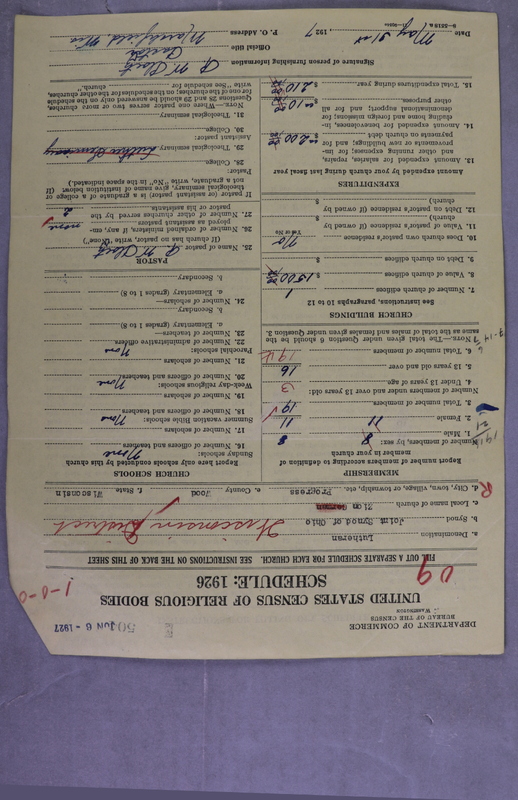 DEPARTMENT OF COMMERCE
BUREAU OF THE CENSUS
WASHINGTON
JUN 6 - 1927
UNITED STATES CENSUS OF RELIGIOUS BODIES
SCHEDULE: 1926
1-0-0
09
FILL OUT A SEPARATE SCHEDULE FOR EACH CHURCH. SEE INSTRUCTIONS ON THE BACK OF THIS SHEET
a. Denomination Lutheran
b. Synod Joint Synod of Ohio Wisconsin District
c. Local name of church Zion
d. City, town, village, or township, etc. Progress e. County Wood f. State Wisconsin
R
MEMBERSHIP
Report number of members according to definition of
member in your church
Number of members, by sex:
1. Male 8 8
2. Female 11 11
3. Total number of members 19
Number of members under and over 13 years old:
4. Under 13 years of age 3
5. 13 years old and over 16
6. Total number of members 19
NOTE.—The total given under Question 6 should be the
same as the total of males and females given under Question 3.
CHURCH BUILDINGS
See Instructions, paragraphs 10 to 12
7. Number of church edifices 1
8. Value of church edifices $ 1500.00
9. Debt on church edifices $
10. Does church own pastor's residence No
Yes or No
11. Value of pastor's residence (if owned by
church) $
12. Debt on pastor's residence (if owned by
church) $
EXPENDITURES
Amount expended by your church during last fiscal year
13. Amount expended for salaries, repairs,
and other running expenses; for im-
provements or new buildings; and for
payments on church debt $ 200.00
14. Amount expended for benevolences, in-
cluding home and foreign missions; for
denominational support; and for all
other purposes $ 10.00
15. Total expenditures during year $ 210.00
CHURCH SCHOOLS
Report here only schools conducted by this church
Sunday schools:
16. Number of officers and teachers None
17. Number of scholars
Summer vacation Bible schools:
18. Number of officers and teachers None
19. Number of scholars
Week-day religious schools:
20. Number of officers and teachers None
21. Number of scholars
Parochial schools:
22. Number of administrative officers None
23. Number of teachers
a. Elementary (grades 1 to 8)
b. Secondary
24. Number of scholars
a. Elementary (grades 1 to 8)
b. Secondary
PASTOR
25. Name of pastor
(If church has no pastor, write "None")
26. Number of ordained ministers, if any, em-
ployed as assistant pastors none
27. Number of other churches served by the
pastor or his assistants 2
If pastor (or assistant pastor) is a graduate of a college or
theological seminary, give name of institution below: (If
not a graduate, write "No," in the space indicated.)
Pastor:
28. College
29. Theological seminary Luther Seminary
Assistant pastor:
30. College
31. Theological seminary
NOTE.—Where one pastor serves two or more churches,
Questions 28 and 29 should be answered only on the schedule
for one of the churches; on the schedule for the other churches,
write "See schedule for church."
Signature of person furnishing information
Official title Pastor
Date May 31st 1927 P. O. Address Marshfield, Wis